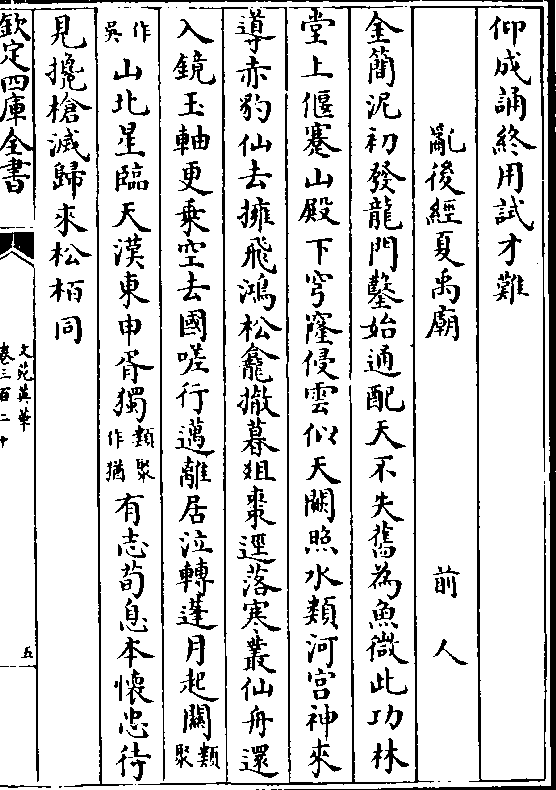 仰成誦終用試才難
亂後經夏禹廟 前人
金簡泥初發龍門鑿始通配天不失舊為魚微此功林
堂上偃蹇山殿下穹窿侵雲似天闕照水類河宮神來
導赤豹仙去擁飛鴻松龕撤暮俎棗逕落寒叢仙舟還
入鏡玉軸更乗空去國嗟行邁離居泣轉蓬月起闗類聚
作吳山北星臨天漢東申胥獨類聚作猶有志荀息本懷忠待
見攙槍滅歸來松栢同
欽定四庫全書
文苑英華
卷三百二十
五